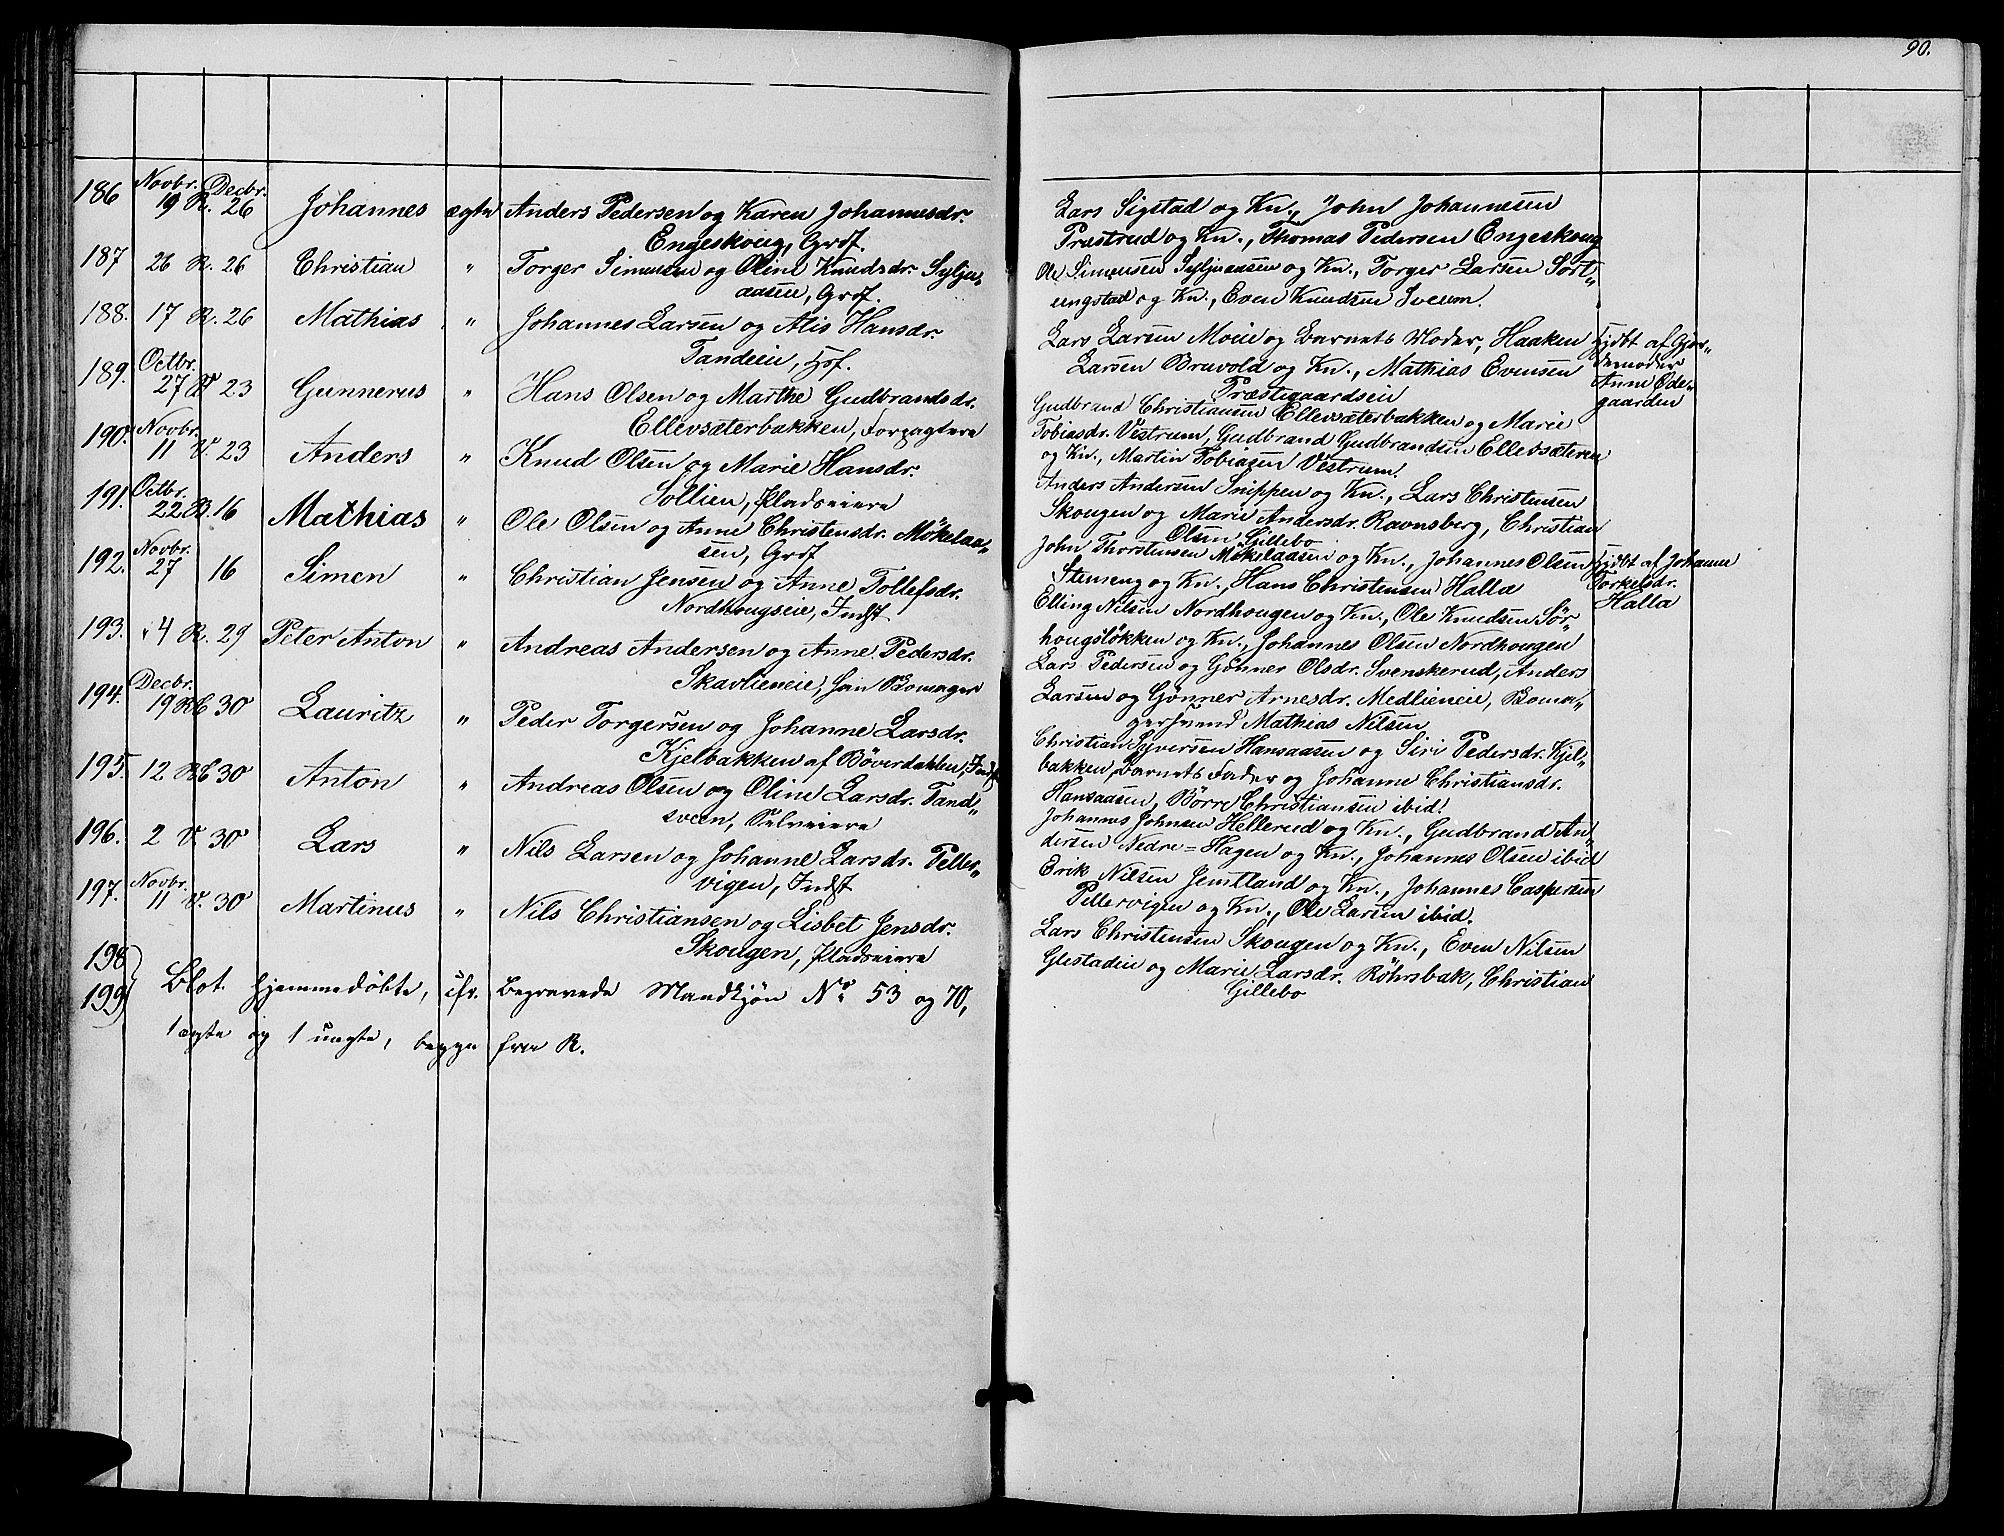 90.
186 Novbr. 19 R. Decbr. 26 Johannes ægte Anders Pedersen og Karen Johannesdr.
Engeskoug, Grdf.
187 26 R. 26 Christian " Torger Simensen og Oline Knudsdr. Sylju-
aasen, Grdf.
188. 17 R. 26 Mathias " Johannes Larsen og Alis Hansdr.
Tandeie, Hsf.
189. Octbr. 27 V 23 Gunnerus " Hans Olsen og Marthe Gudbrandsdr.
Ellevsæterbakken, Forpagtere
190. Novbr. 11 V. 23 Anders " Knud Olsen og Marie Hansdr.
Sollien, Pladseiere
191. Octbr. 22. B. 16 Mathias " Ole Olsen og Anne Christensdr. Mökelaa-
sen, Grdf
192. Novbr. 27 16 Simen " Christian Jensen og Anne Tollefsdr.
Nordhougseie, Indst
193. 4 R. 29 Peter Anton " Andreas Andersen og Anne Pedersdr.
Skavlieneie, Bomager
194. Decbr. 19 30 Lauritz " Peder Torgersen og Johanne Larsdr.
Kjelbakken af Böverdahlen, Indst
195. 12 30 Anton " Andreas Olsen og Oline Larsdr. Tand-
sveen, Selveiere
196. 2 V. 30 Lars " Nils Larsen og Johanne Larsdr. Peller-
vigen, Indst
197. Novbr. 11 V. 30 Martinus " Nils Christiansen og Lisbet Jensdr.
Skougen, Pladseiere
198
199 Blot hjemmedöbte, cfr. Begravede Mandkjön No 53 og 70,
1 ægte og 1 uægte, begge fra R.
Lars Sigstad og Kn., John Johannesen
Præstrud og Kn., Thomas Pedersen Engeskoug
Ole Simensen Syljuaasen og Kn., Torger Larsen Sört-
ungstad og Kn., Even Knudsen Sveum.
Lars Larsen Moeie og Barnets Moder, Haaken
Larsen Bruvold og Kn., Mathias Evensen
Præstegaardseie
Hjdbt af Gjor-
demoder
Anne Öde-
gaarden
Gudbrand Christiansen Ellevsæterbakken og Marie
Tobiasdr. Vestrum, Gudbrand Gudbrandsen Ellevsæteren
og Kn., Martin Tobiasen Vestrum.
Anders Andersen Snippen og Kn., Lars Christensen
Skougen og Marie Andersdr. Ravnsberg, Christian
Olsen Gillebo
John Thorstensen Mökelaasen og Kn., Johannes Olsen
Stenseng og Kn., Hans Christensen Halla
Hjdbt af Johanne
Torkelsdr.
Halla
Elling Nilsen Nordhougen og Kn., Ole Knudsen Sör-
hougslökken og Kn., Johannes Olsen Nordhougen
Lars Pedersen og Gönner Olsdr. Svenskerud, Anders
Larsen og Gönner Arnesdr. Medlieneie, Boma-
gersvend Mathias Nilsen
Christian Syversen Hansaasen og Siri Pedersdr. Kjel-
bakken, Barnets Fader og Johanne Christiansdr.
Hansaasen, Börre Christiansen ibid.
Johannes Johnsen Hellerud og Kn., Gudbrand An-
dersen Nedre-Hagen og Kn., Johannes Olsen ibid
Erik Nilsen Jemtland og Kn., Johannes Caspersen
Pellervigen og Kn., Ole Larsen ibid.
Lars Christensen Skougen og Kn., Even Nilsen
Glestadeie og Marie Larsdr. Röhrsbak, Christian
Gillebo